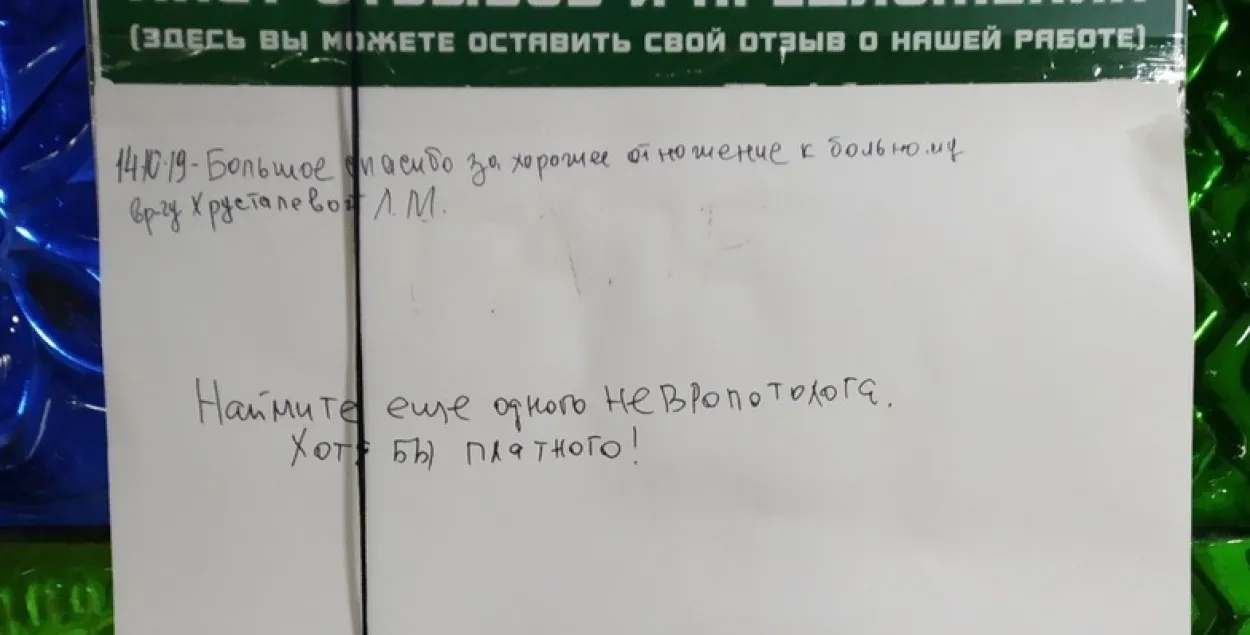 ЛИСТ ОТЗЫВОВ И ПРЕДЛОЖЕНИЙ
(ЗДЕСЬ ВЫ МОЖЕТЕ ОСТАВИТЬ СВОЙ ОТЗЫВ О НАШЕЙ РАБОТЕ)
14.10.19 - Большое спасибо за хорошее отношение к больному
вр-чу Хрусталевой Л.М.
Наймите еще одного невропотолога.
Хотя бы платного!